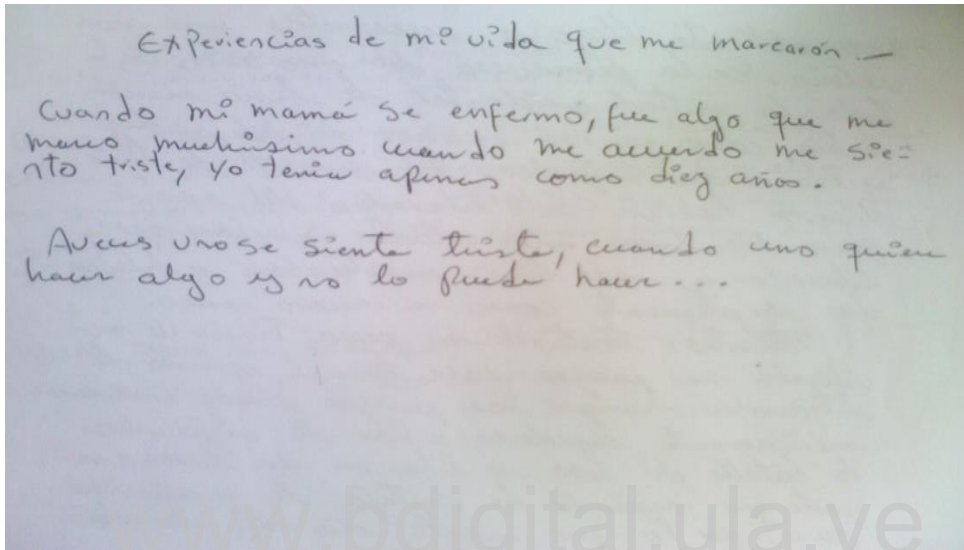 Experiencias de mi vida que me marcarón.—
Cuando mi mamá se enfermó, fue algo que me
marco muchisimo cuando me acuerdo me sie-
nto triste, yo tenia apenas como diez años.
Aveces uno se siente triste, cuando uno quiere
hacer algo y no lo puede hacer...
www.bdigital.ula.ve